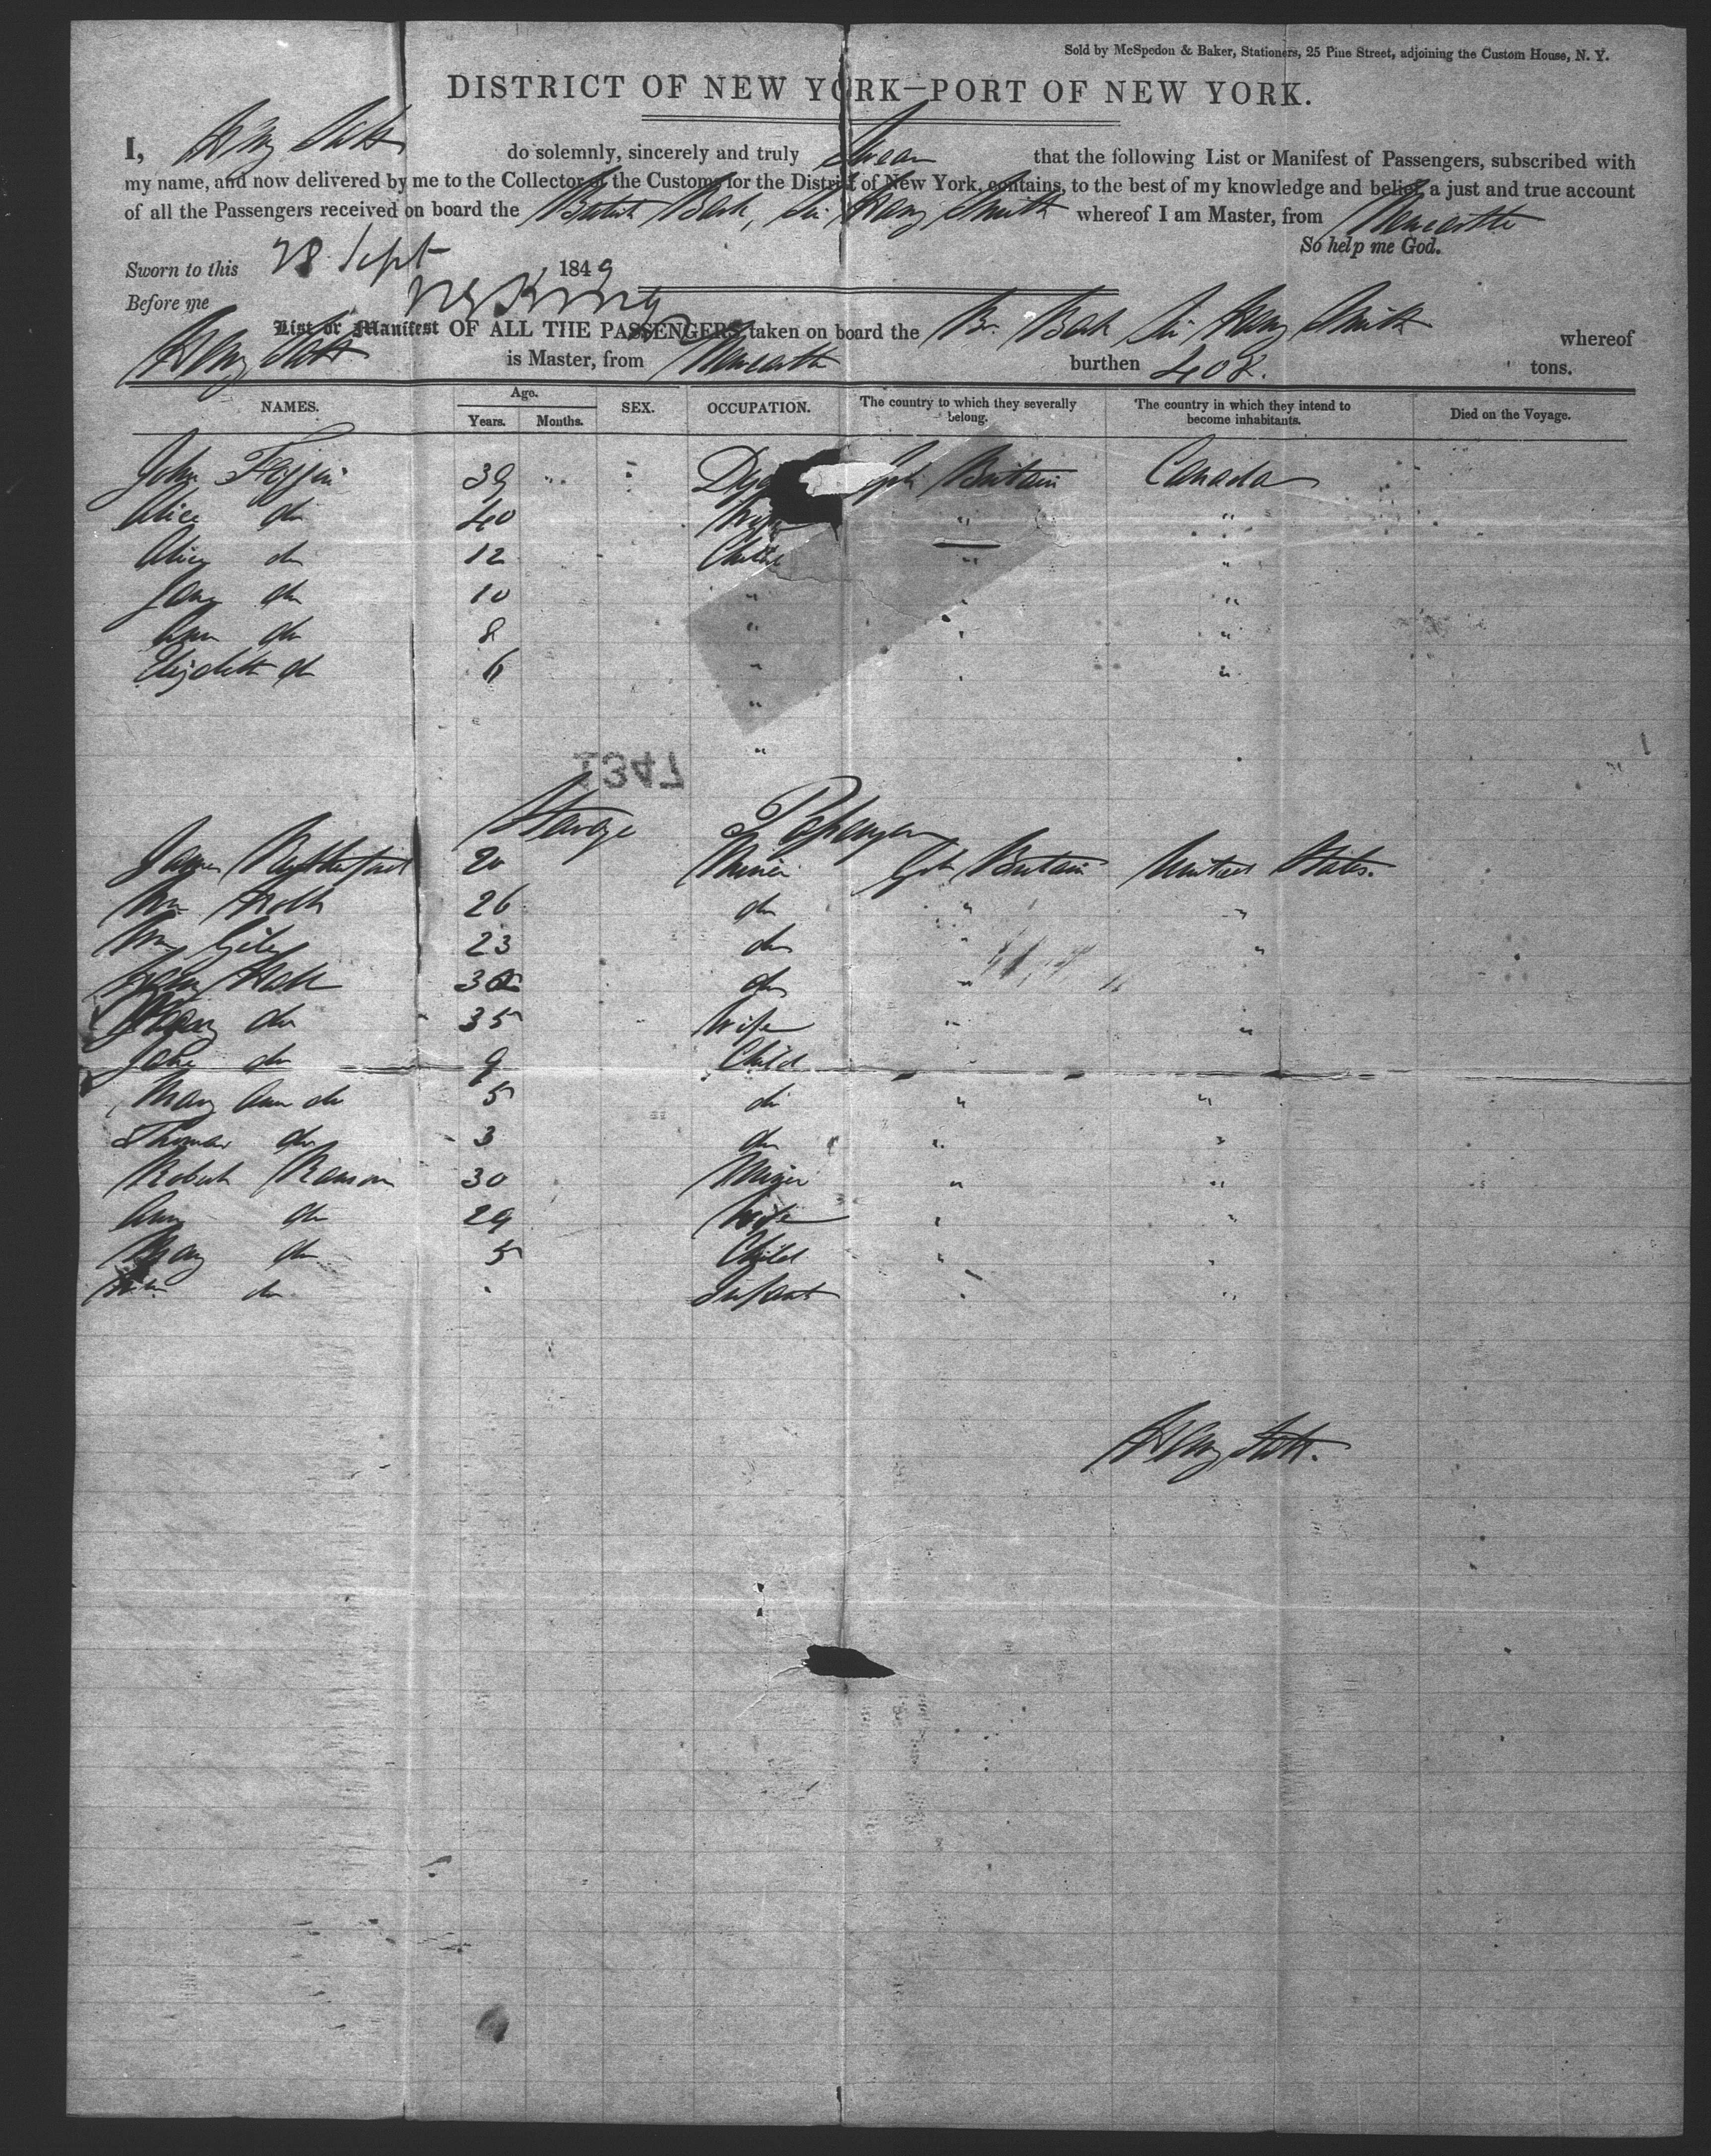 Sold by McSpedon & Baker, Stationers, 25 Pine Street, adjoining the Custom House, N. Y.
DISTRICT OF NEW YORK—PORT OF NEW YORK.
I, Henry do solemnly, sincerely and truly Swear that the following List or Manifest of Passengers, subscribed with
my name, and now delivered by me to the Collector of the Customs for the District of New York, contains, to the best of my knowledge and belief, a just and true account
of all the Passengers received on board the British Bark, Sir Henry Smith whereof I am Master, from Newcastle
So help me God.
Sworn to this 28 Sept 1849
Before me
List or Manifest OF ALL THE PASSENGERS taken on board the Br. Bark Sir Henry Smith whereof
Henry is Master, from Newcastle burthen 408. tons.
NAMES. Age. Years. Months. SEX. OCCUPATION. The country to which they severally belong. The country in which they intend to become inhabitants. Died on the Voyage.
John 39 " Britain Canada
Alice do 40 Wife " "
Alice do 12 Child " "
Jane do 10 " " "
Ann do 8 " " "
Elizabeth do 6 " " "
"
"
1347
Steerage Passengers
James Rutherford 20 Miner Gt. Britain United States.
Wm 26 do " "
Wm 23 do " "
Hall do "
Mary do 35 Wife " "
John do 9 Child
Mary Ann do 5 do " "
Thomas do 3 do " "
Robert Ranson 30 Miner " "
Ann do 29 Wife " "
Mary do 5 Child " "
do Infant " "
Henry